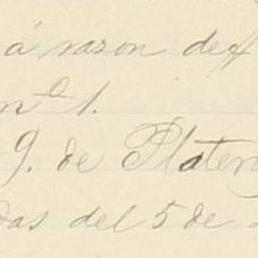 á razon de $
nº 1.
9. de Plater
das del 5 de